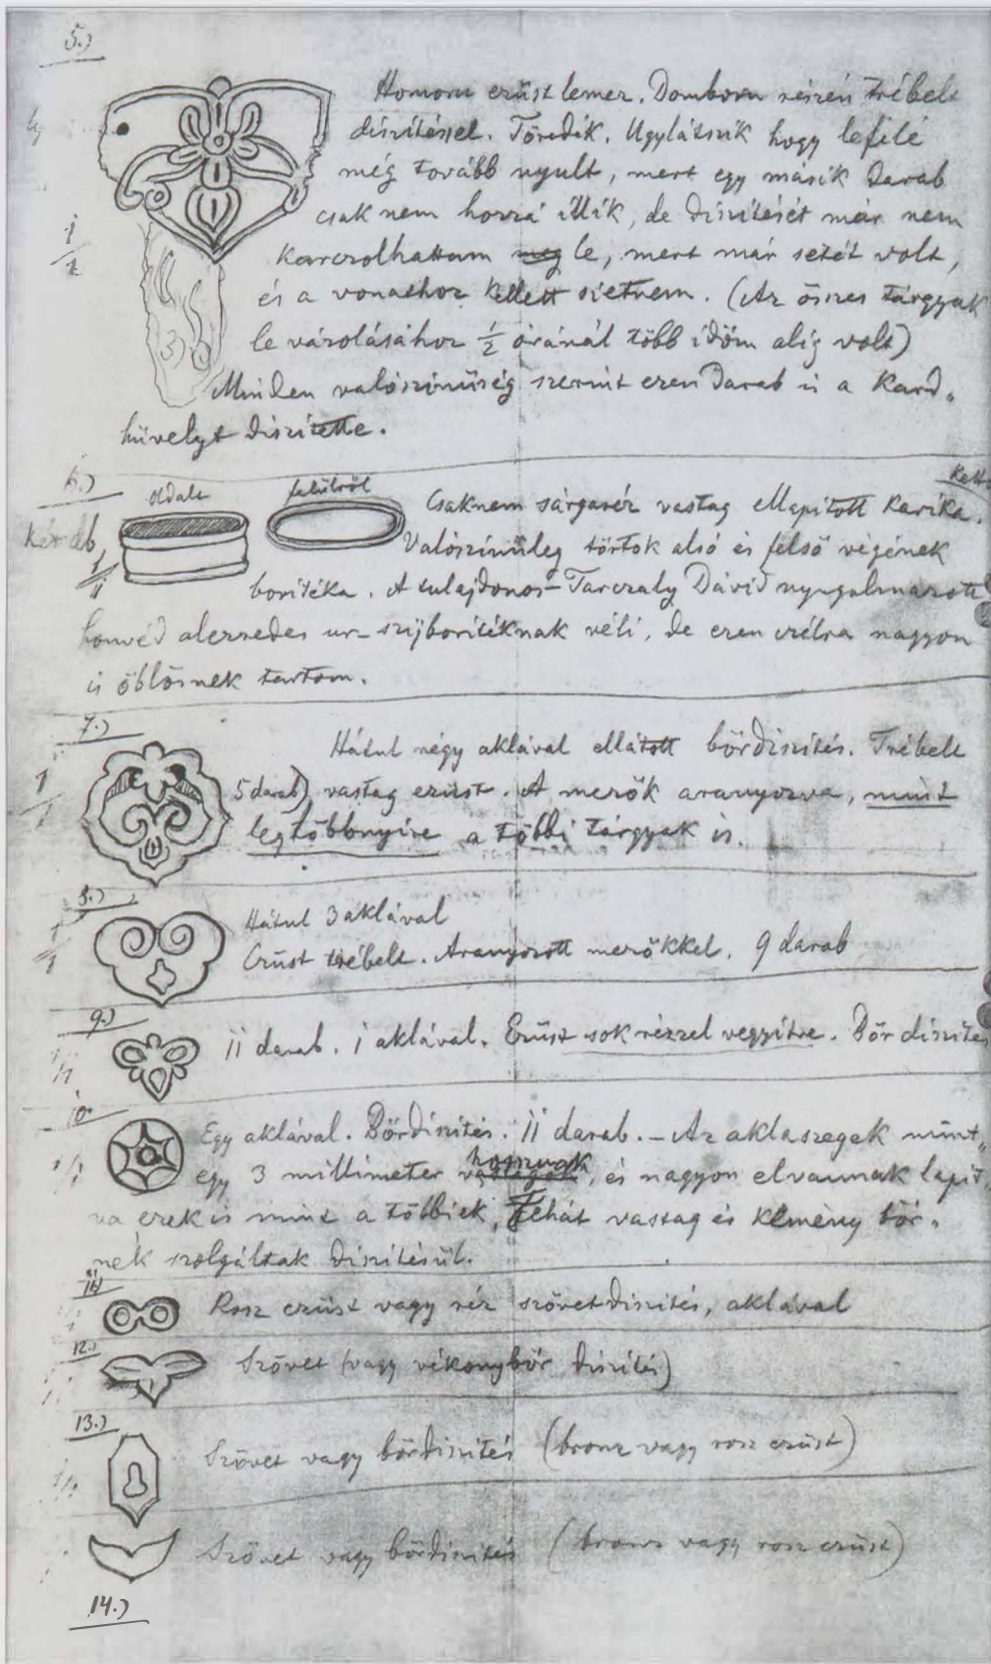 5.)
Homorú ezüst lemez. Domború részén trébelt
díszítéssel. Töredék. Ugylátszik hogy lefelé
még tovább nyult, mert egy másik darab
csak nem hozzá illik, de díszítését már nem
karczolhattam meg le, mert már setét volt,
és a vonathoz kellett sietnem. (Az összes tárgyak
le vázolásához ½ óránál több időm alig volt)
Minden valószinüség szerint ezen darab is a kard„
hüvelyt diszitette.
1/1
6.)
oldalt
felülről
Két db
1/1
Csaknem sárgaréz vastag ellapitott karika.
Valószinüleg tőrtok alsó és felső végének
boritéka. A tulajdonos – Tarczaly Dávid nyugalmazott
honvéd alezredes ur – szijboritéknak véli, de ezen czélra nagyon
is öblösnek tartom.
7.)
1/1
Hátul négy aklával ellátott bőrdiszités. Trébelt
5 darab) vastag ezüst. A mezők aranyozva, mint
legtöbbnyire a többi tárgyak is.
8.)
1/1
Hátul 3 aklával
Ezüst trébelt. Aranyozott mezőkkel. 9 darab
9.)
1/1
11 darab. 1 aklával. Ezüst sok rézzel vegyitve. Bőr diszités
10.
1/1
Egy aklával. Bőrdiszités. 11 darab. – Az aklaszegek mint„
hosszuak
egy 3 millimeter vastagok, és nagyon elvannak lapit„
va ezek is mint a többiek, Tehát vastag és kemény bőr„
nek szolgáltak diszitésül.
11)
Rosz ezüst vagy réz szövetdiszités, aklával
12.)
Szövet (vagy vékonybőr diszités)
13.)
1/1
Szövet vagy bőrdiszités (bronz vagy rosz ezüst)
Szövet vagy bőrdiszités (bronz vagy rosz ezüst)
14.)